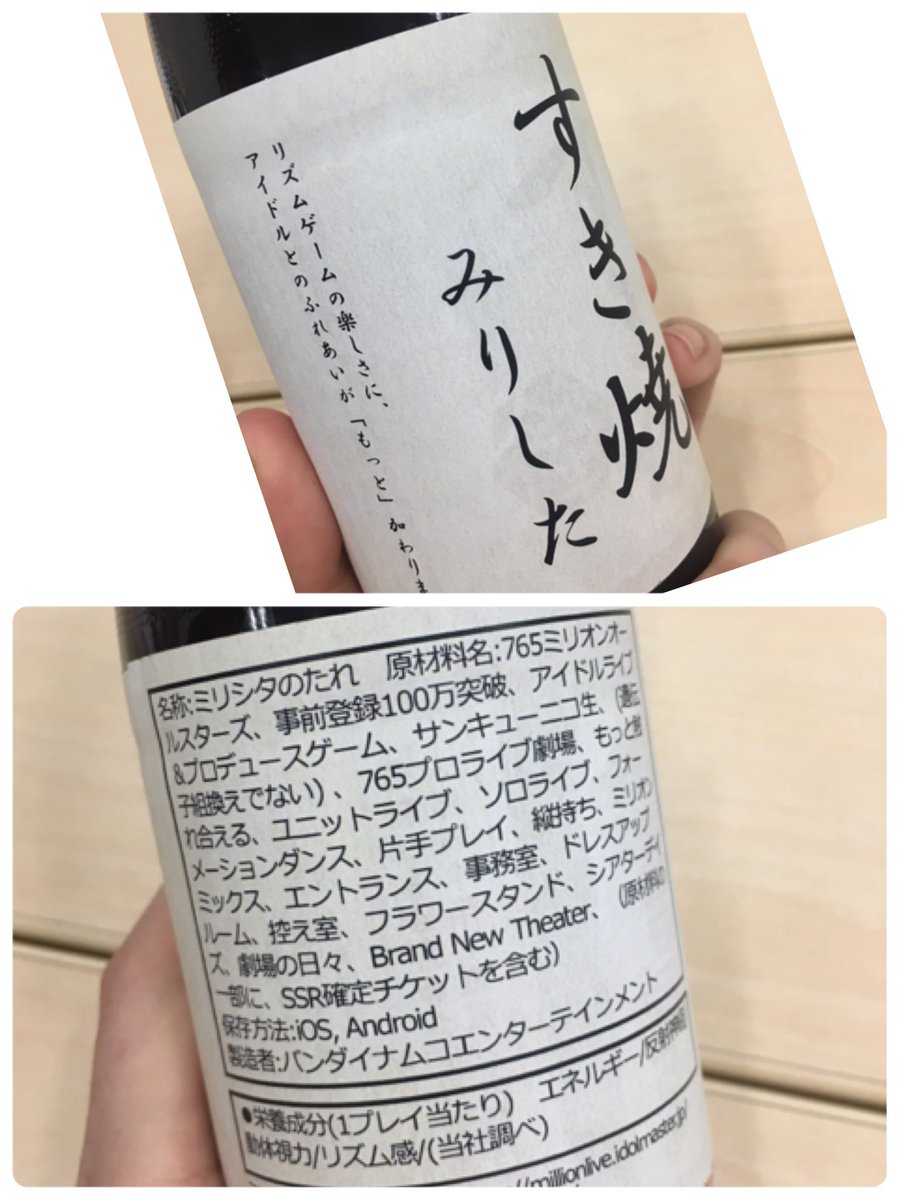 すき焼
みりした
リズムゲームの楽しさに、
アイドルとのふれあいが「もっと」加わりま
名称:ミリシタのたれ 原材料名:765ミリオンオー
ルスターズ、事前登録100万突破、アイドルライブ
&プロデュースゲーム、サンキューニコ生、(遺伝
子組換えでない)、765プロライブ劇場、もっと触
れ合える、ユニットライブ、ソロライブ、フォー
メーションダンス、片手プレイ、縦持ち、ミリオン
ミックス、エントランス、事務室、ドレスアップ
ルーム、控え室、フラワースタンド、シアターデイ
ズ、劇場の日々、Brand New Theater、(原材料の
一部に、SSR確定チケットを含む)
保存方法:iOS, Android
製造者:バンダイナムコエンターテインメント
●栄養成分(1プレイ当たり) エネルギー/反射神経/
動体視力/リズム感/(当社調べ)
://millionlive.idolmaster.jp/